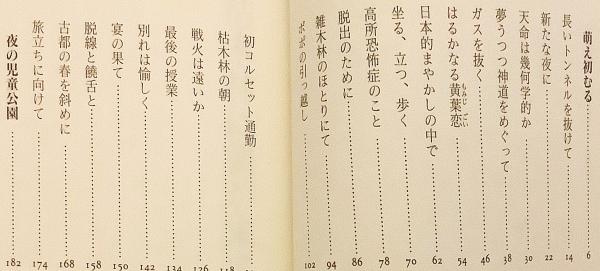 萌え初むる……6
長いトンネルを抜けて……14
新たな夜に……22
天命は幾何学的か……30
夢うつつ神道をめぐって……38
ガスを抜く……46
はるかなる黄葉恋……54
もみじごい
日本的まやかしの中で……62
坐る、立つ、歩く……70
高所恐怖症のこと……78
脱出のために……86
雑木林のほとりにて……94
ポポの引っ越し……102
初コルセット通勤
枯木林の朝……118
戦火は遠いか……126
最後の授業……134
別れは愉しく……142
宴の果て……150
脱線と饒舌と……158
古都の春を斜めに……168
旅立ちに向けて……174
夜の児童公園……182